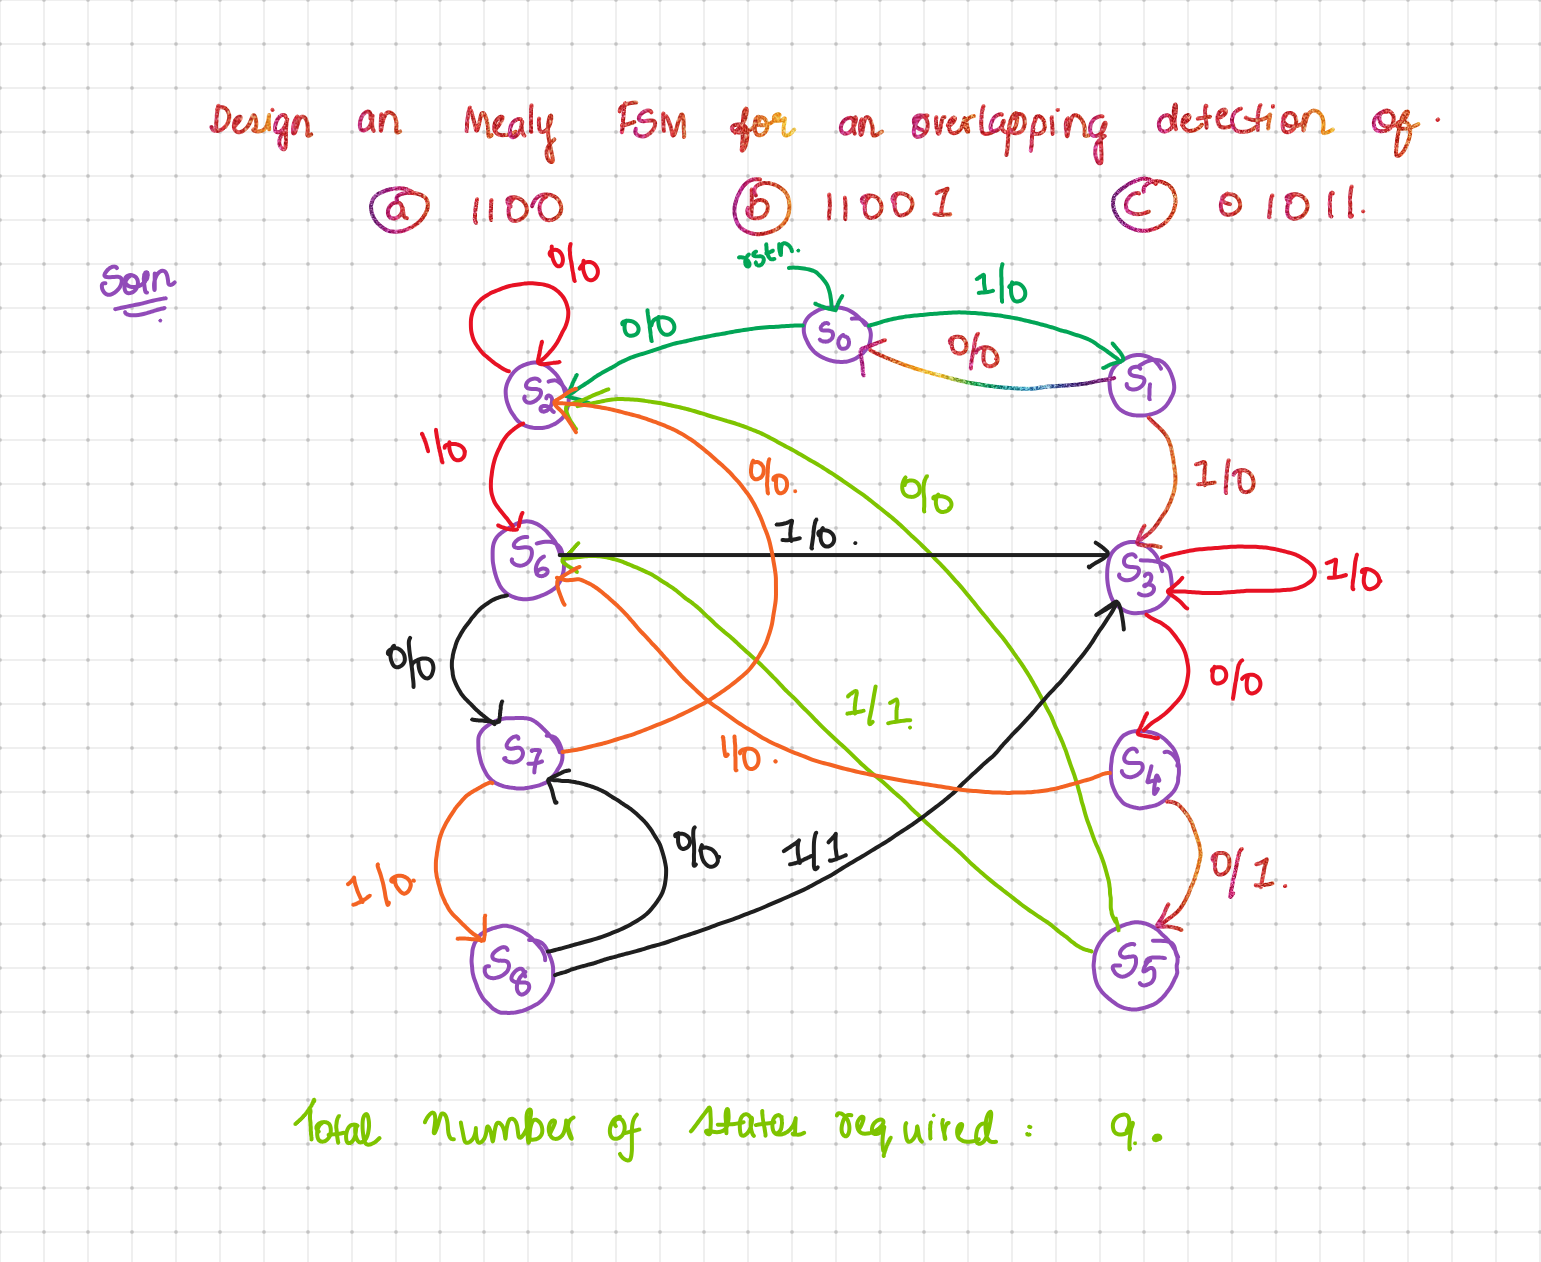 Design an Mealy FSM for an overlapping detection of.
ⓐ 1100 ⓑ 11001 ⓒ 01011.
Soln
rstn.
0/0
0/0
1/0
0/0
S0
S1
S2
1/0
0/0.
0/0
1/0
1/0.
S6
S3
1/0
0/0
0/0
1/1.
1/0.
S7
S4
0/0
1/1
0/1.
1/0
S8
S5
Total number of states required: 9.